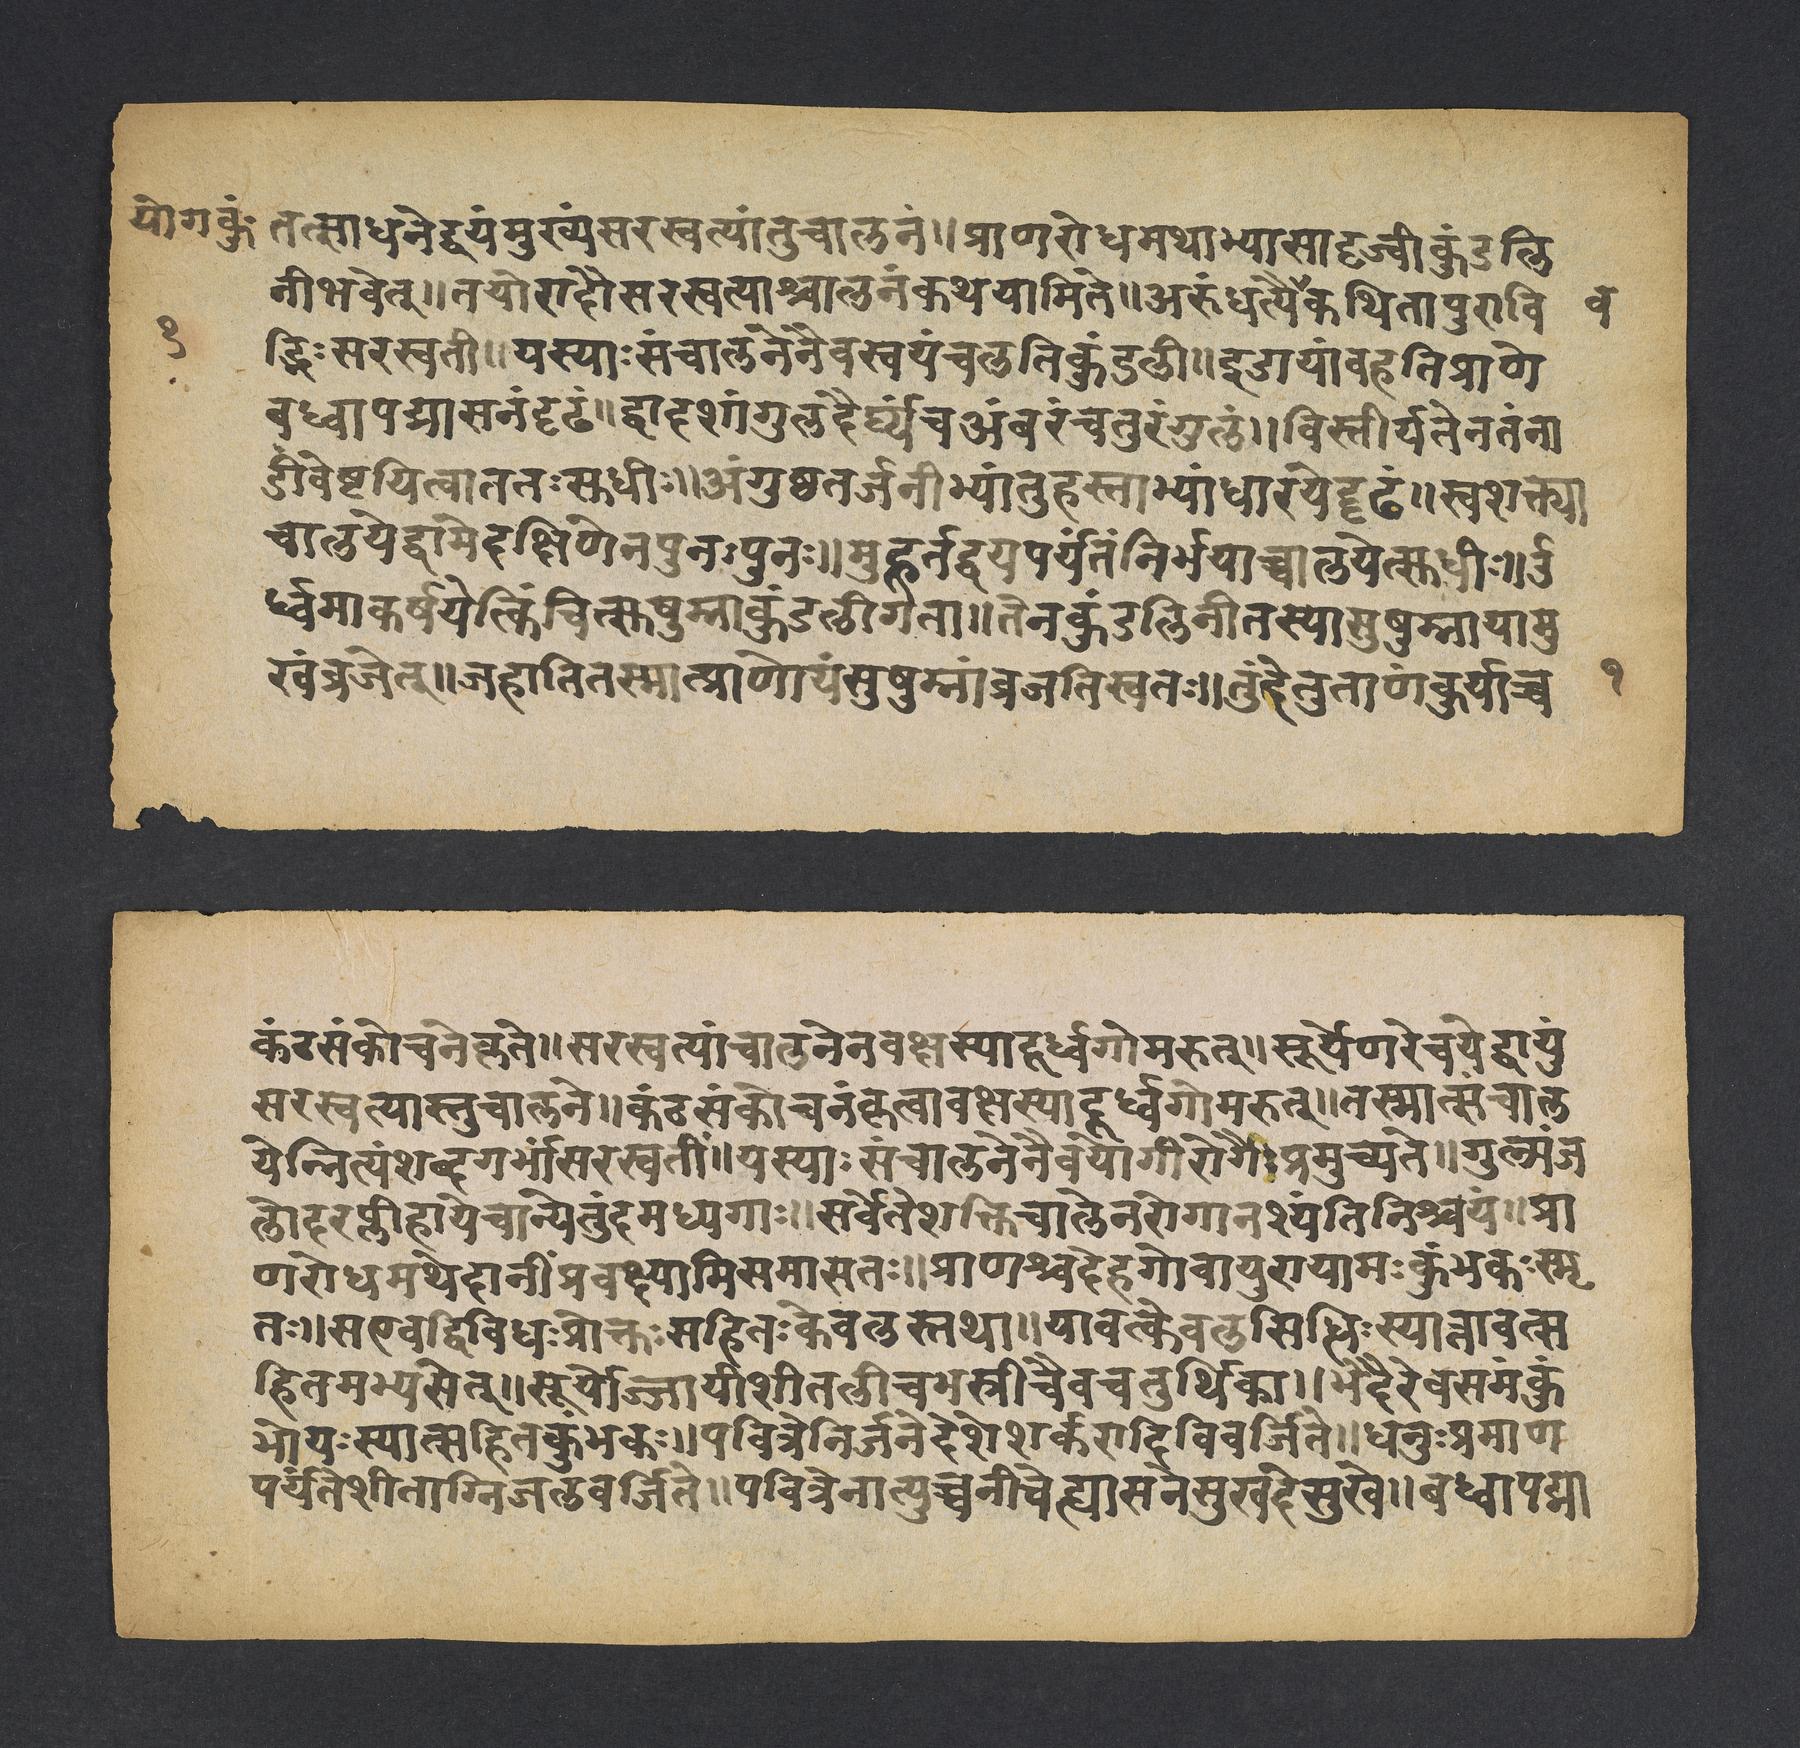 योगकुं तत्साधनेद्वयंमुख्यंसरस्वत्यांतुचालनं॥प्राणरोधमथाभ्यासादृज्वीकुंडलि
नीभवेत्॥तयोरादौसरस्वत्याश्चालनंकथयामिते॥अरुंधत्यैकथितापुरावि व
१ द्भिःसरस्वती॥यस्याःसंचालनेनैवस्वयंचलतिकुंडली॥इडायांवहतिप्राणे
बध्वापद्मासनंदृढं॥द्वादशांगुलदैर्घ्यंचअंबरंचतुरंगुलं॥विस्तीर्यतेनतंना
डींवेष्टयित्वाततःसुधीः॥अंगुष्ठतर्जनीभ्यांतुहस्ताभ्यांधारयेद्दृढं॥स्वशक्त्या
चालयेद्वामेदक्षिणेनपुनःपुनः॥मुहूर्तद्वयपर्यंतंनिर्भयाच्चालयेत्सुधीः॥उ
र्ध्वमाकर्षयेत्किंचित्सुषुम्नाकुंडलीगता॥तेनकुंडलिनीतस्यासुषुम्नायामु
खंव्रजेत्॥जहातितस्मात्प्राणोयंसुषुम्नांव्रजतिस्वतः॥तुंदेतुताणंकुर्याच्च १
कंठसंकोचनेकृते॥सरस्वत्यांचालनेनवक्षस्यादूर्ध्वगोमरुत्॥सूर्येणरेचयेद्वायुं
सरस्वत्यास्तुचालने॥कंठसंकोचनंकृत्वावक्षस्यादूर्ध्वगोमरुत्॥तस्मात्संचाल
येन्नित्यंशब्दगर्भांसरस्वतीं॥यस्याःसंचालनेनैवयोगीरोगैःप्रमुच्यते॥गुल्मंज
लोदरप्लीहायेचान्येतुंदमध्यगाः॥सर्वेतेशक्तिचालेनरोगानश्यंतिनिश्चयं॥प्रा
णरोधमथेदानींप्रवक्ष्यामिसमासतः॥प्राणश्चदेहगोवायुरायामःकुंभकःस्मृ
तः॥सएवद्विविधःप्रोक्तःसहितःकेवलस्तथा॥यावत्केवलसिद्धिःस्यात्तावत्स
हितमभ्यसेत्॥सूर्योज्जायीशीतलीचभस्त्रीचैवचतुर्थिका॥भेदैरेवसमंकुं
भोयःस्यात्सहितकुंभकः॥पवित्रेनिर्जनेदेशेशर्करादिविवर्जिते॥धनुःप्रमाण
पर्यंतेशीताग्निजलवर्जिते॥पवित्रेनात्युच्चनीचेह्यासनेसुखदेसुखे॥बध्वापद्मा